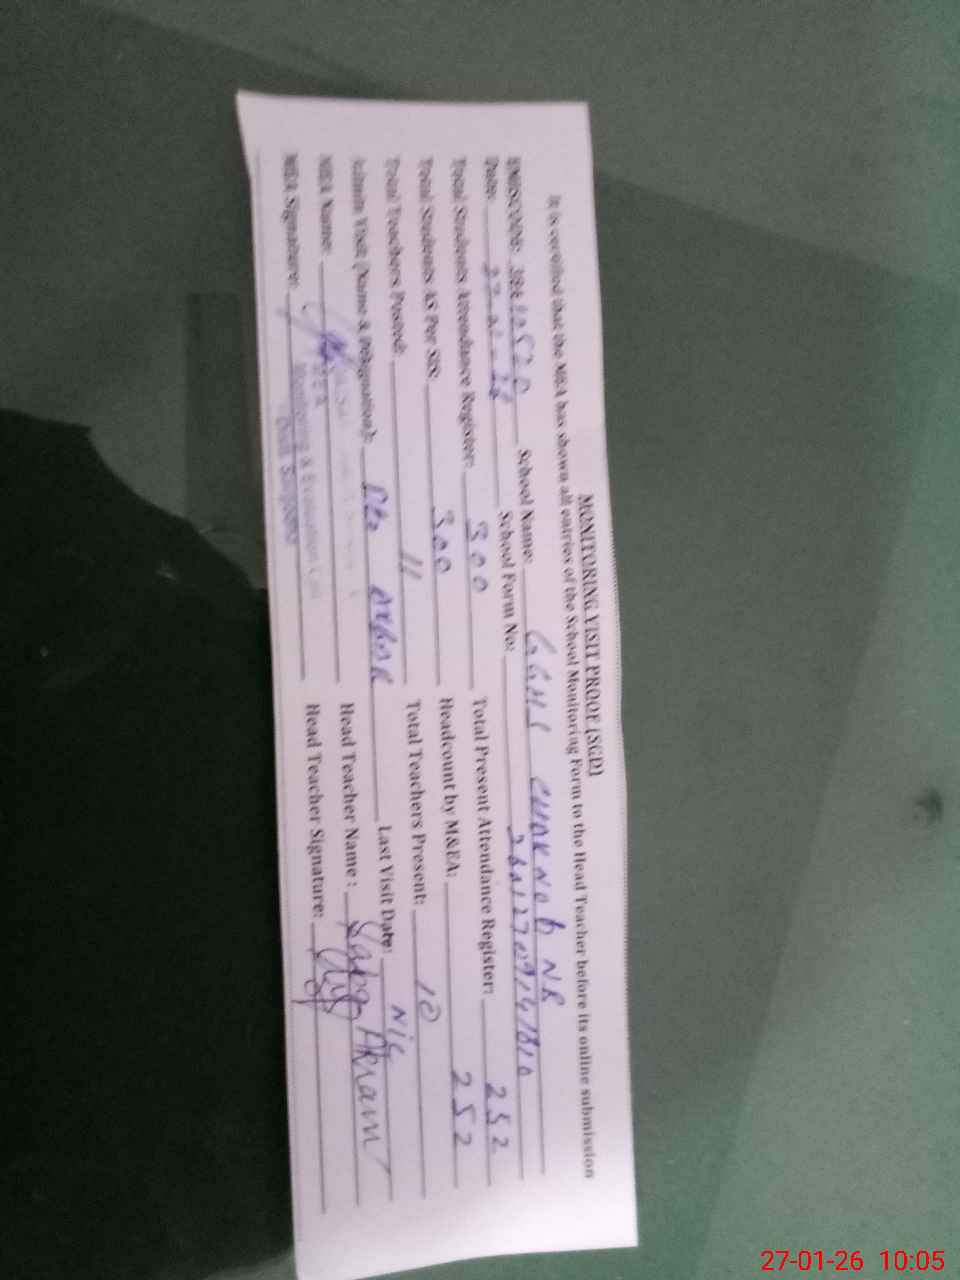 MONITORING VISIT PROOF (SGD)
It is certified that the MEA has shown all entries of the School Monitoring Form to the Head Teacher before its online submission
EMISCODE: 384 10520 School Name: GGHS CHAK NO 6 NB
Date: 27-01-26 School Form No:
Total Students Attendance Register: 300 Total Present Attendance Register: 252
Total Students AS Per SIS: 300 Headcount by M&EA: 252
Total Teachers Posted: 11 Total Teachers Present: 10
Admin Visit (Name & Designation): Last Visit Date: Nil
MEA Name: Head Teacher Name: Akram
MEA Signature: Head Teacher Signature:
Monitoring & Evaluation Cell
Distt Sargodha
27-01-26 10:05